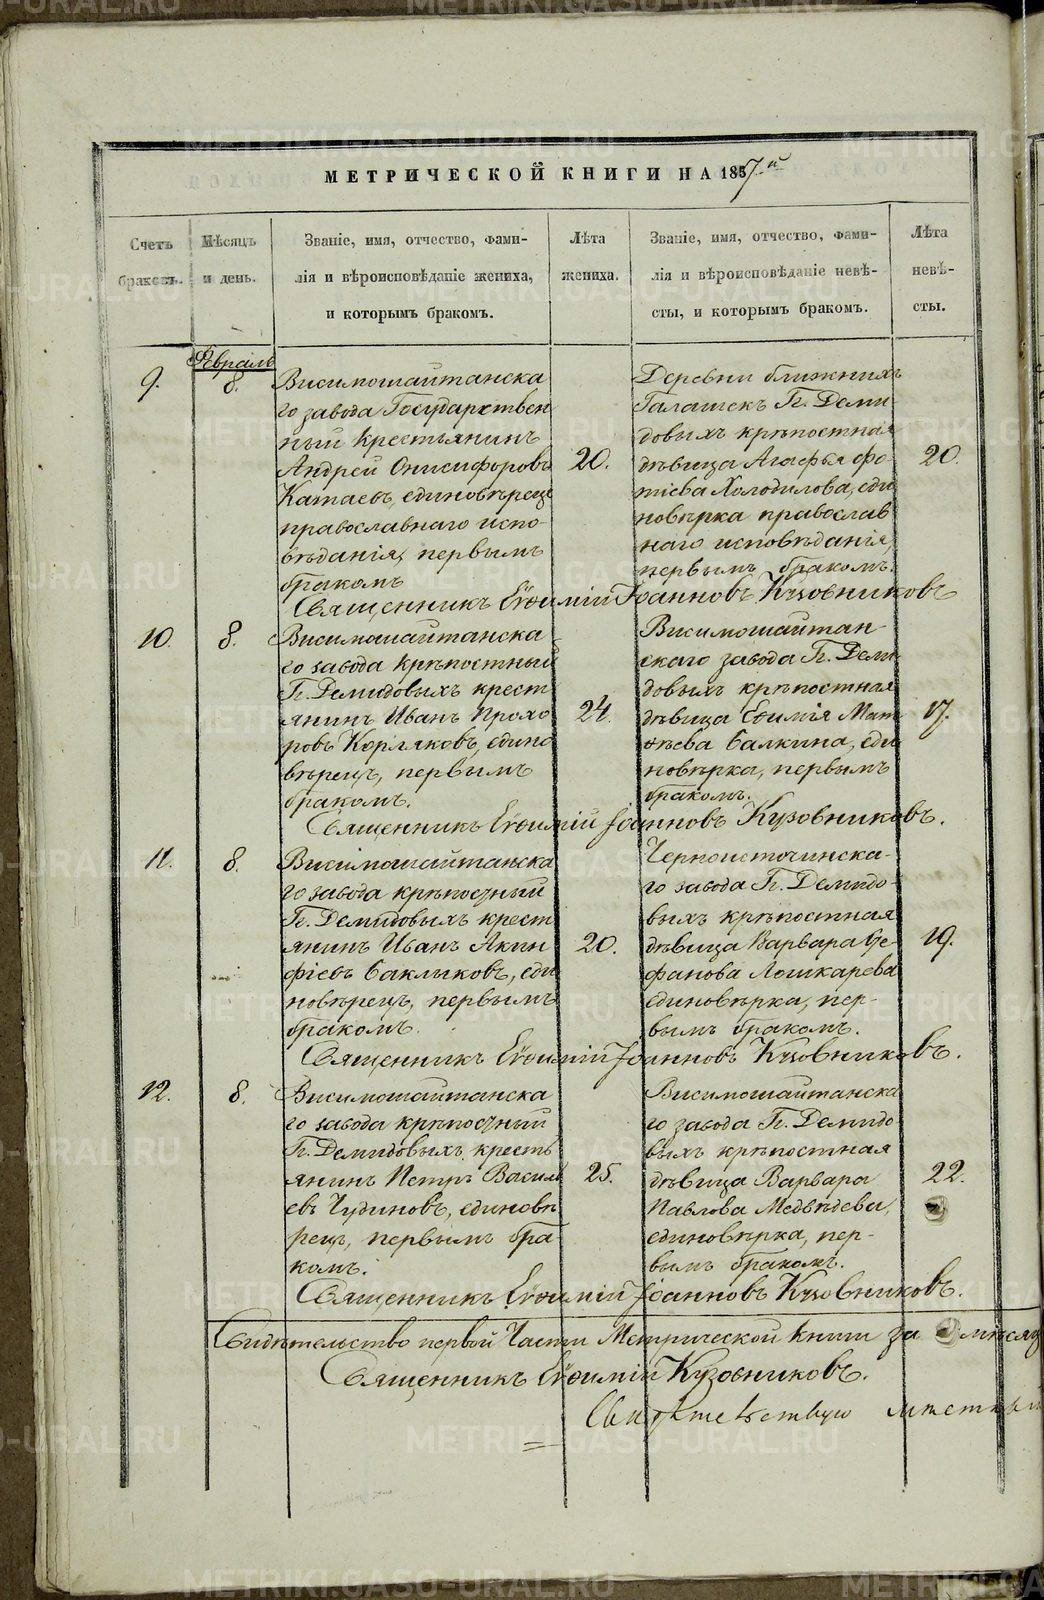 МЕТРИЧЕСКОЙ КНИГИ НА 1857й
Счетъ браковъ.
Мѣсяцъ и день.
Званіе, имя, отчество, фами-
лія и вѣроисповѣданіе жениха,
и которымъ бракомъ.
Лѣта жениха.
Званіе, имя, отчество, фами-
лія и вѣроисповѣданіе невѣ-
сты, и которымъ бракомъ.
Лѣта невѣ-
сты.
Февраль
9.
8.
Висимошайтанска
го завода Государствен
ный крестьянинъ
Андрей Онисифоровъ
Катаевъ, единовѣрецъ
православнаго испо-
вѣданія, первымъ
бракомъ
20.
Деревни ближнихъ
Галашекъ Г. Деми-
довыхъ крѣпостная
дѣвица Агафья Фо-
тіева Холодилова, еди
новѣрка православ
наго исповѣданія,
первымъ бракомъ.
20.
Священникъ Евѳимій Іоанновъ Кузовниковъ
10.
8.
Висимошайтанска
го завода крѣпостный
Г. Демидовыхъ крест
янинъ Иванъ Прохо
ровъ Корляковъ, едино
вѣрецъ, первымъ
бракомъ.
24.
Висимошайтан-
скаго завода Г. Деми
довыхъ крѣпостная
дѣвица Евѳимія Мат
ѳѣева Балкина, еди
новѣрка, первымъ
бракомъ.
17.
Священникъ Евѳимій Іоанновъ Кузовниковъ.
11.
8.
Висимошайтанска
го завода крѣпосчный
Г. Демидовыхъ крест
янинъ Иванъ Акин
фіевъ Баклыковъ, еди
новѣрецъ, первымъ
бракомъ.
20.
Черноисточинска-
го завода Г. Демидо-
выхъ крѣпостная
дѣвица Варвара Сте-
фанова Лошкарева
единовѣрка, пер-
вымъ бракомъ.
19.
Священникъ Евѳимій Іоанновъ Кузовниковъ.
12.
8.
Висимошайтанска
го завода крѣпосчный
Г. Демидовыхъ кресть
янинъ Петръ Василь
евъ Чудиновъ, единовѣ
рецъ, первымъ бра-
комъ.
25.
Висимошайтанска
го завода Г. Демидо
выхъ крѣпостная
дѣвица Варвара
Павлова Медвѣдева,
единовѣрка, пер-
вымъ бракомъ.
22.
Священникъ Евѳимій Іоанновъ Кузовниковъ.
Свидѣтельство первой Части Метрической книги за мѣсяц
Священникъ Евѳимій Кузовниковъ.
Свидѣтельствую
METRIKI.GASO-URAL.RU